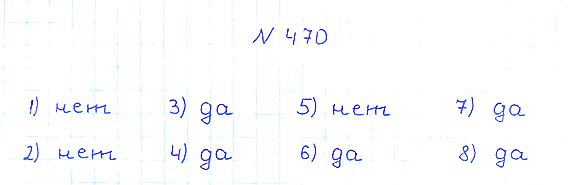 N 470
1) нет 3) да 5) нет 7) да
2) нет 4) да 6) да 8) да